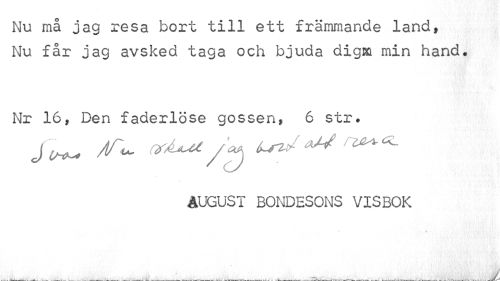 Nu må jag resa bort till ett främmande land,
Nu får jag avsked taga och bjuda dig min hand.
Nr 16, Den faderlöse gossen, 6 str.
Svar Nu skall jag bort att resa
AUGUST BONDESONS VISBOK